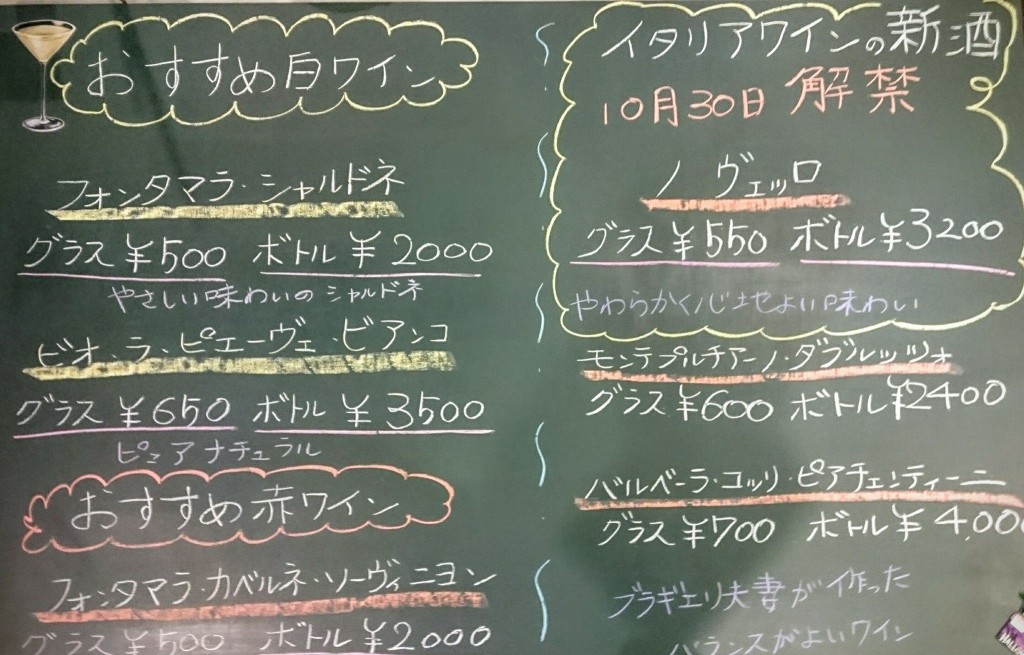 おすすめ白ワイン
フォンタマラ・シャルドネ
グラス ¥500 ボトル ¥2000
やさしい味わいの シャルドネ
ビオ・ラ・ピエーヴェ・ビアンコ
グラス ¥650 ボトル ¥3500
ピュア ナチュラル
おすすめ赤ワイン
フォンタマラ・カベルネ・ソーヴィニヨン
グラス ¥500 ボトル ¥2000
イタリアワインの新酒
10月30日 解禁
ノヴェッロ
グラス ¥550 ボトル ¥3200
やわらかく心地よい味わい
モンテプルチアーノ・ダブルッツォ
グラス ¥600 ボトル ¥2400
バルベーラ・コッリ・ピアチェンティーニ
グラス ¥700 ボトル ¥4,000
ブラギエリ夫妻が作った
バランスがよいワイン